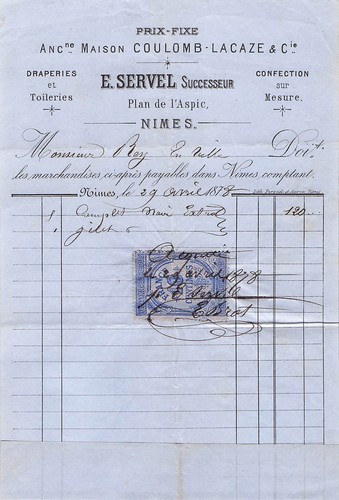 PRIX-FIXE
Ancne Maison COULOMB-LACAZE & Cie
DRAPERIES
et
Toileries
E. SERVEL Successeur
Plan de l'Aspic,
NIMES.
CONFECTION
sur
Mesure.
Monsieur Rey En Ville Doit
les marchandises ci-après payables dans Nimes, comptant.
Nimes, le 29 avril 1878
1 Complet Noir 120
1 gilet
le 29 avril 1878
E Servel